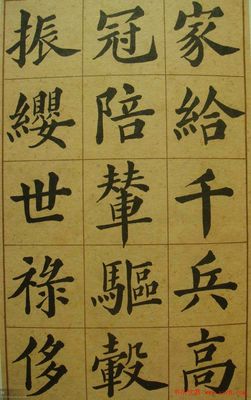 家給千兵高
冠陪輦驅轂
振纓世祿侈